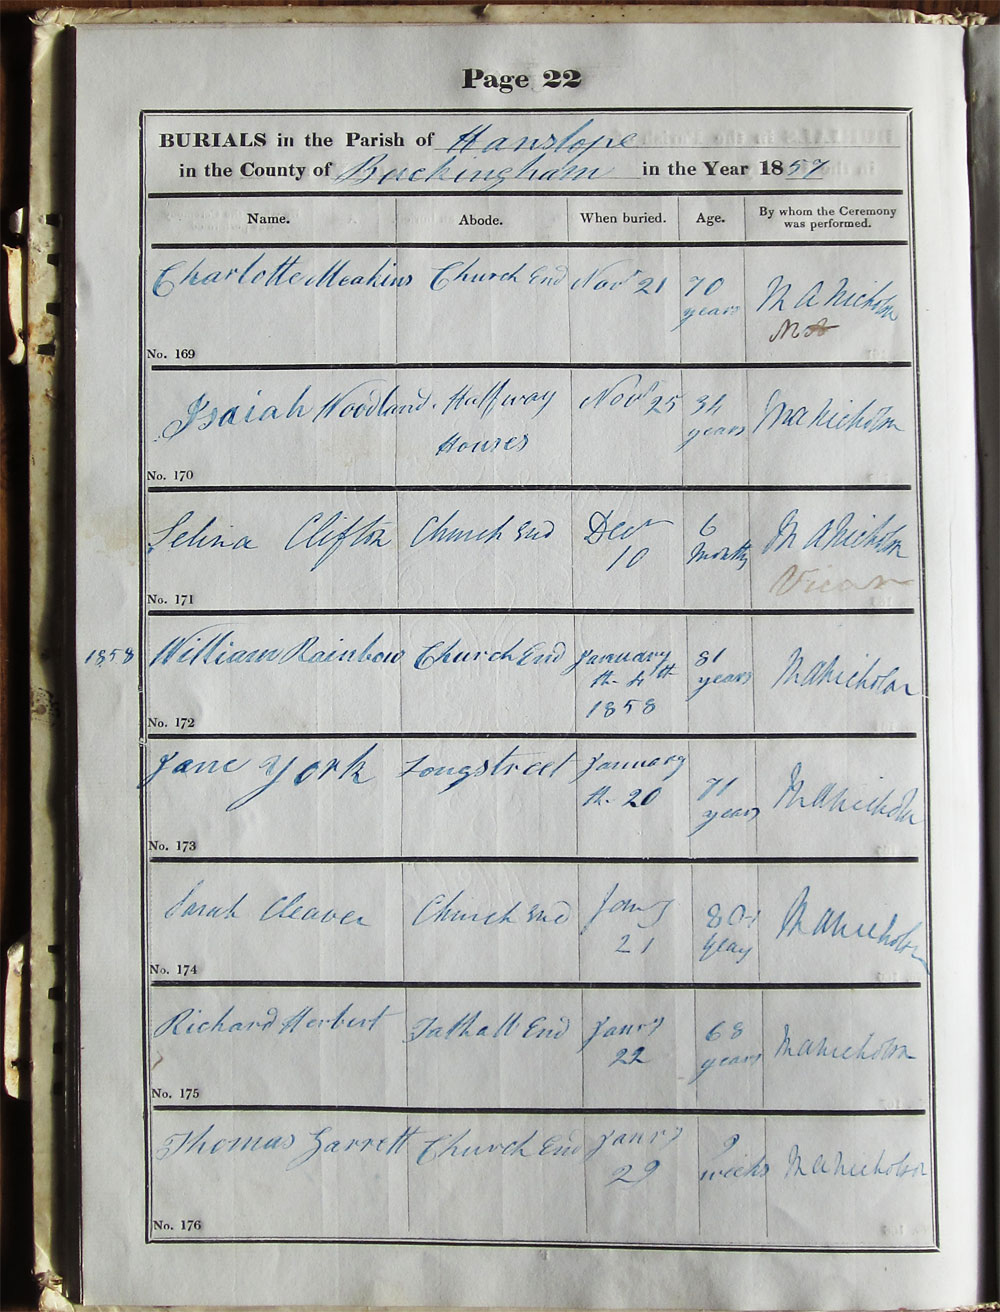 Page 22
BURIALS in the Parish of Hanslope
in the County of Buckingham in the Year 1857
Name. Abode. When buried. Age. By whom the Ceremony was performed.
Charlotte Meakins Church End Novr 21 70 years M A Nicholson
No. 169
Isaiah Woodland. Halfway Houses Novr 25 34 years M A Nicholson
No. 170
Selina Clifton Church End Decr 10 6 Months M A Nicholson
Vicar
No. 171
1858 William Rainbow Church End January th. 4th 1858 81 years M A Nicholson
No. 172
Jane York Longstreet January th. 20 71 years M A Nicholson
No. 173
Sarah Cleaver Church End Jany 21 80 years M A Nicholson
No. 174
Richard Herbert Tathall End Janry 22 68 years M A Nicholson
No. 175
Thomas Garrett Church End Janry 29 weeks M A Nicholson
No. 176